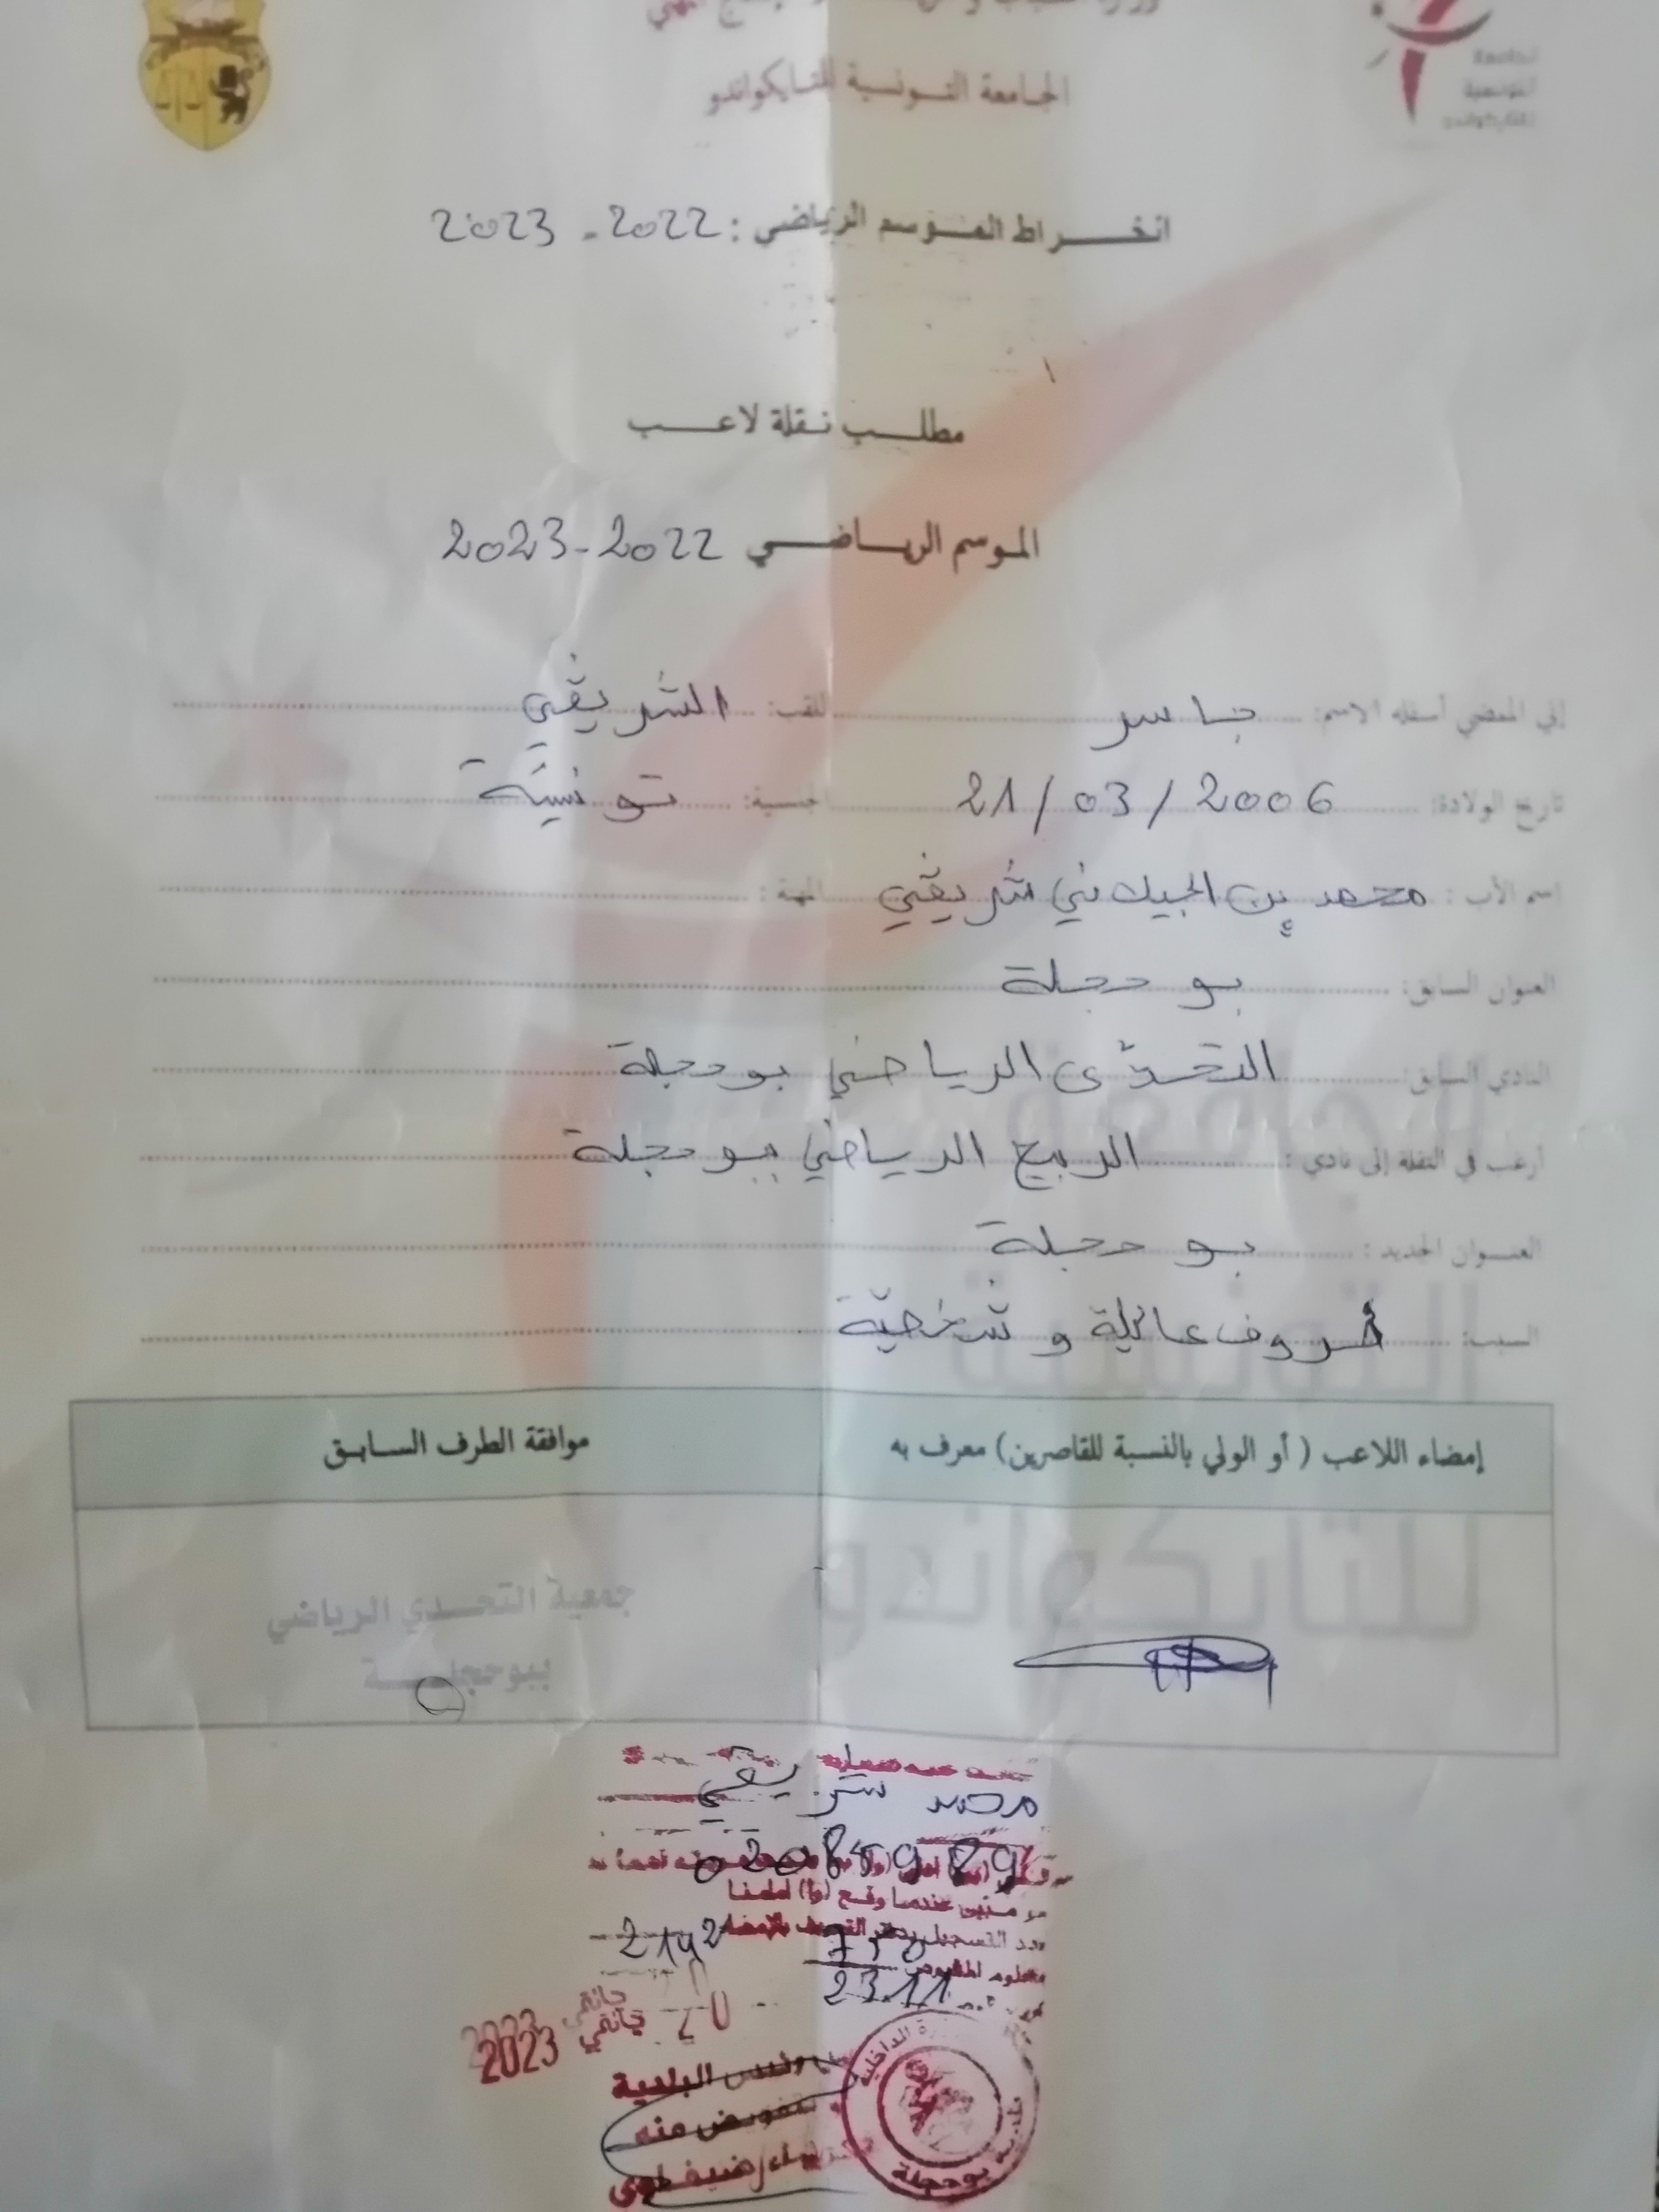 الجامعة التونسية للتايكواندو
الجامعة
التونسية
للتايكواندو
انخراط الموسم الرياضي : 2022 - 2023
مطلب نقلة لاعب
الموسم الرياضي 2022-2023
إني الممضي أسفله الاسم: ياسر اللقب: الشريڨي
تاريخ الولادة: 21/03/2006 الجنسية: تونسيّة
اسم الأب : محمد بن الجيلاني شريڨي المهنة :
العنوان السابق: بوحجلة
النادي السابق: التحدّي الرياضي بوحجلة
أرغب في النقلة إلى نادي : الربيع الرياضي ببوحجلة
العنوان الجديد : بوحجلة
السبب: ظروف عائلية و شخصيّة
إمضاء اللاعب ( أو الولي بالنسبة للقاصرين) معرف به
موافقة الطرف السابق
جمعية التحدي الرياضي
ببوحجلة
الجامعة
التونسية
للتايكواندو
محمد شريڨي
عدد التسجيل بدفتر التعريف بالإمضاء 2142
معلوم المقبوض
23.11
جانفي 2023
رئيس البلدية
بتفويض منه
بلدية بوحجلة